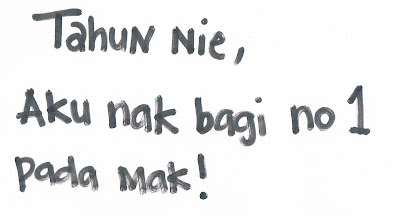 Tahun Nie,
Aku nak bagi no 1
pada Mak!